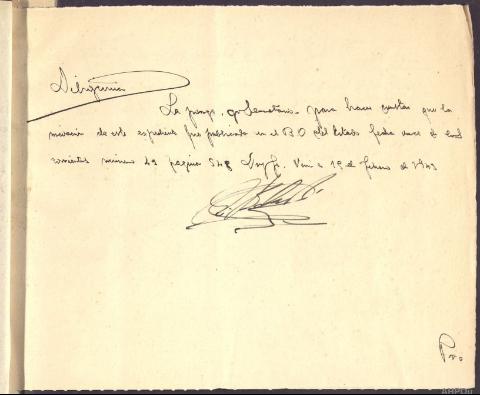 Diligencia
La pongo, yo Secretario para hacer constar que la
incoación de este expediente fué publicada en el B O del Estado fecha once de los
corrientes número 42 página 548 Doy fe. a 19 de febrero de 1943